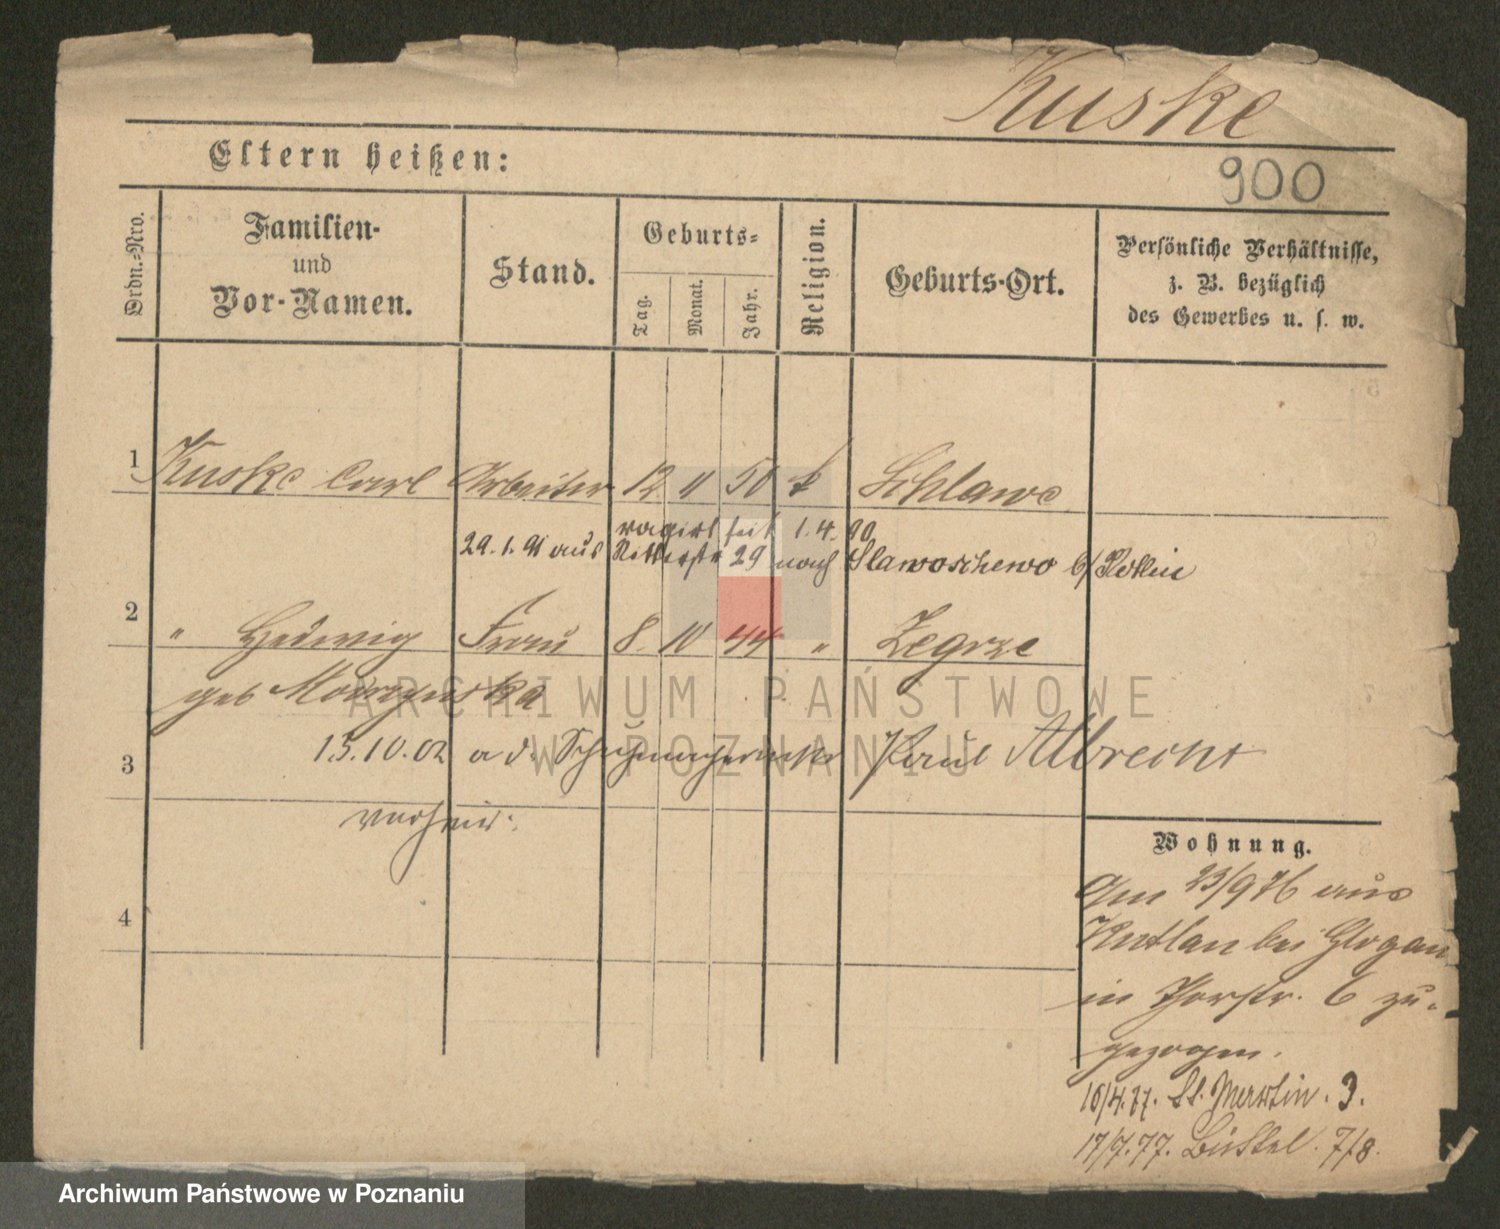 Kuske
Eltern heißen:
900
Ordn.-Nro.
Familien-
und
Vor-Namen.
Stand.
Geburts-
Tag.
Monat.
Jahr.
Religion.
Geburts-Ort.
Persönliche Verhältnisse,
z. B. bezüglich
des Gewerbes u. s. w.
1 Kuske Carl Arbeiter 12 11 50 k Schlawe
vagirt seit 1.4.90
29.1.91 aus Ritterstr 29 nach Slawoschewo b/
2 " Hedwig Frau 8 10 44 " Zegrze
geb
3 15.10.02 a d. Schuhmacher Paul Albrecht
verheir.
4
Wohnung.
Am 23/9 76 aus
Kuttlau bei Glogau
in Thorstr. 6 zu-
gezogen.
10/4.77. St. Martin. 3.
17/7.77. Büttel. 7/8.
ARCHIWUM PAŃSTWOWE
W POZNANIU
Archiwum Państwowe w Poznaniu